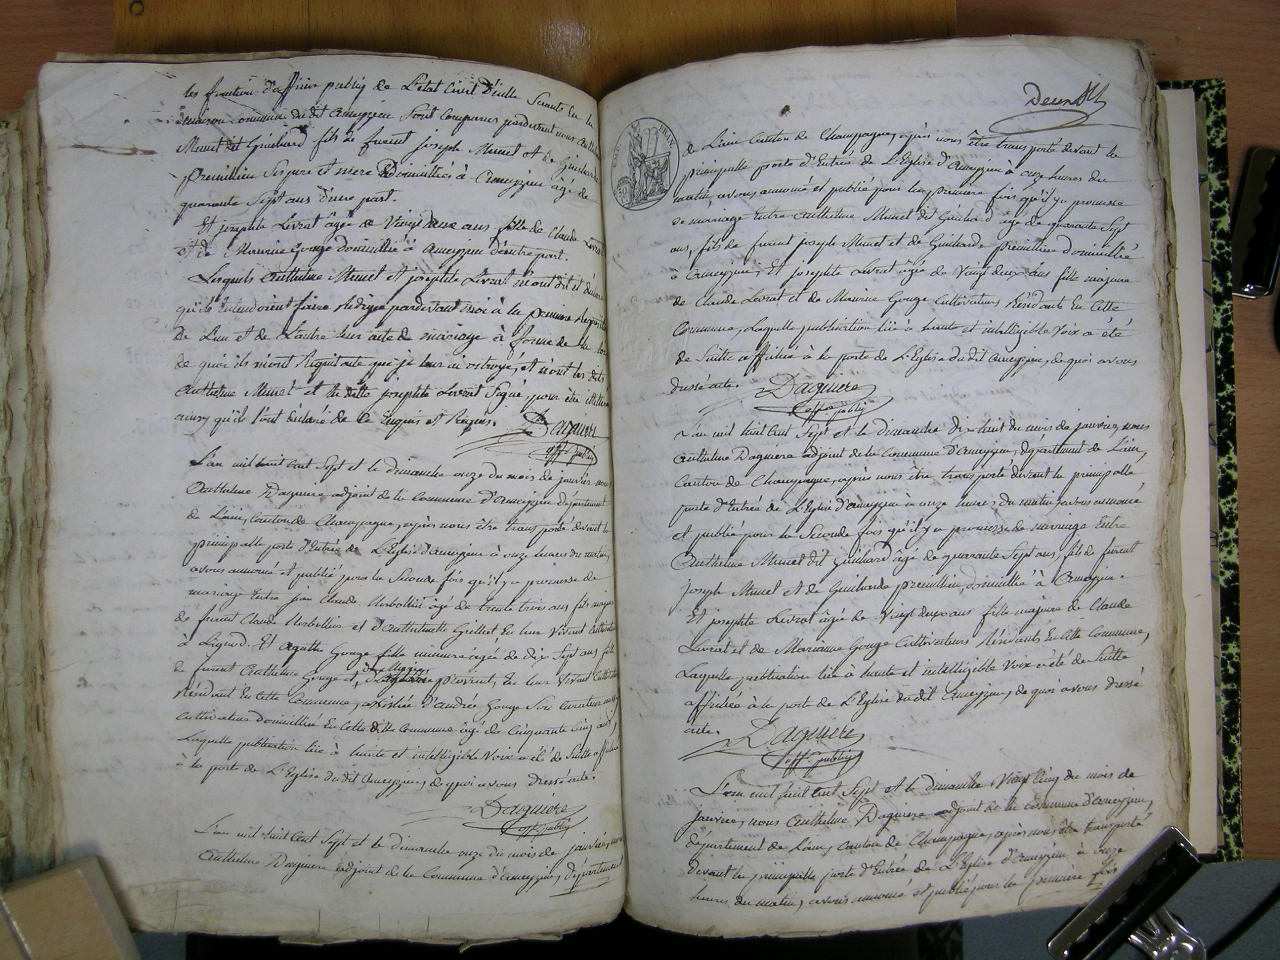 les fonction d'officier public de L'etat Civil d'icelle Seante en la
maison commune du dit Ameyzieu Sont Comparus pardevant nous
Mumet dit Guinhard fils de furent joseph Mumet et de
Premillieu Ses pere et mere Domiciliés à Ameyzieu agé de
quarante Sept ans d'une part.
Et josephte Livrat agée de Vingt deux ans fille de Claude Livrat
et de Mauricie Gonge domiciliés à Ameyzieu d'autre part.
Lesquels Anthelme Mumet et josephte Livrat m'ont dit et
qu'ils Entendoient faire Rediger pardevant moi à la premiere
de L'un et de L'autre Leur acte de mariage à forme de la loi
de quoi ils m'ont Requis acte que je leur ai octroyé, et n'ont les dits
Anthelme Mumet et la ditte josephte Livrat Signé, pour être
ainsy qu'ils l'ont déclaré de ce Enquis et Requis.
Daguere
offr. public
L'an mil huit Cent Sept et le dimanche onze du mois de janvier nous
Anthelme Daguere, adjoint de la Commune d'Ameyzieu departement
de L'ain, Canton de Champagne, après nous être transporté devant la
principalle porte d'Entrée de L'Eglise d'ameyzieu à onze heures du matin,
avons annoncé et publié pour la Seconde fois qu'il y a promesse de
mariage Entre jean Claude agé de trente trois ans fils majeur
de furent Claude et d'Anthelmette Grillet En leur Vivant
à Lignod. Et Agathe Gonge fille mineure agée de Dix Sept ans fille
de furent Anthelme Gonge et En leur Vivant
Résidant En Cette Commune, assistée d'andré Gonge Son Curateur
Cultivateur domicilié En Cette ditte Commune agé de Cinquante Cinq ans,
Laquelle publication lüe à haute et intelligible Voix a été de Suitte affichée
à la porte de L'Eglise du dit Ameyzieu, de quoi avons dressé acte.
Daguere
off. public
L'an mil huit Cent Sept et le dimanche onze du mois de janvier, nous
Anthelme Daguere adjoint de la Commune d'ameyzieu, département
Deux
de L'ain Canton de Champagne, après nous être transporté devant la
principalle porte d'Entrée de L'Eglise d'Ameyzieu à onze heures du
matin, avons annoncé et publié pour la premiere fois qu'il y a promesse
de mariage Entre Anthelme Mumet dit Guinhard agé de quarante Sept
ans, fils de furent joseph Mumet et de Guicharde Premillieu domicilié
à Ameyzieu, Et josephte Livrat agée de Vingt deux ans fille majeure
de Claude Livrat et de Mauricie Gonge Cultivateurs Residants En Cette
Commune, Laquelle publication lüe à haute et intelligible Voix a eté
de Suitte affichée à la porte de L'Eglise du dit Ameyzieu, de quoi avons
dressé acte.
Daguere
offr. public
L'an mil huit Cent Sept et le dimanche dix huit du mois de janvier, nous
Anthelme Daguere adjoint de la Commune d'Ameyzieu, département de L'ain,
Canton de Champagne, après nous être transporté devant la principalle
porte d'Entrée de L'Eglise d'ameyzieu à onze heures, du matin, avons annoncé
et publié pour la Seconde fois qu'il y a promesse de mariage Entre
Anthelme Mumet dit Guinhard agé de quarante Sept ans, fils de furent
Joseph Mumet et de Guicharde Premillieu, domicilié à Ameyzieu.
Et josephte Livrat agée de Vingt deux ans fille majeure de Claude
Livrat et de Marianne Gonge Cultivateurs Résidents En Cette Commune,
Laquelle publication lüe à haute et intelligible Voix a été de Suitte
affichée à la porte de L'Eglise du dit Ameyzieu, de quoi avons dressé
acte.
Daguere
offr. public
L'an mil huit Cent Sept et le dimanche Vingt Cinq du mois de
Janvier, nous Anthelme Daguere adjoint de la commune d'ameyzieu,
département de L'ain, Canton de Champagne, après nous être transporté
devant la principalle porte d'Entrée de L'Eglise d'Ameyzieu à onze
heures du matin, avons annoncé et publié pour la premiere fois